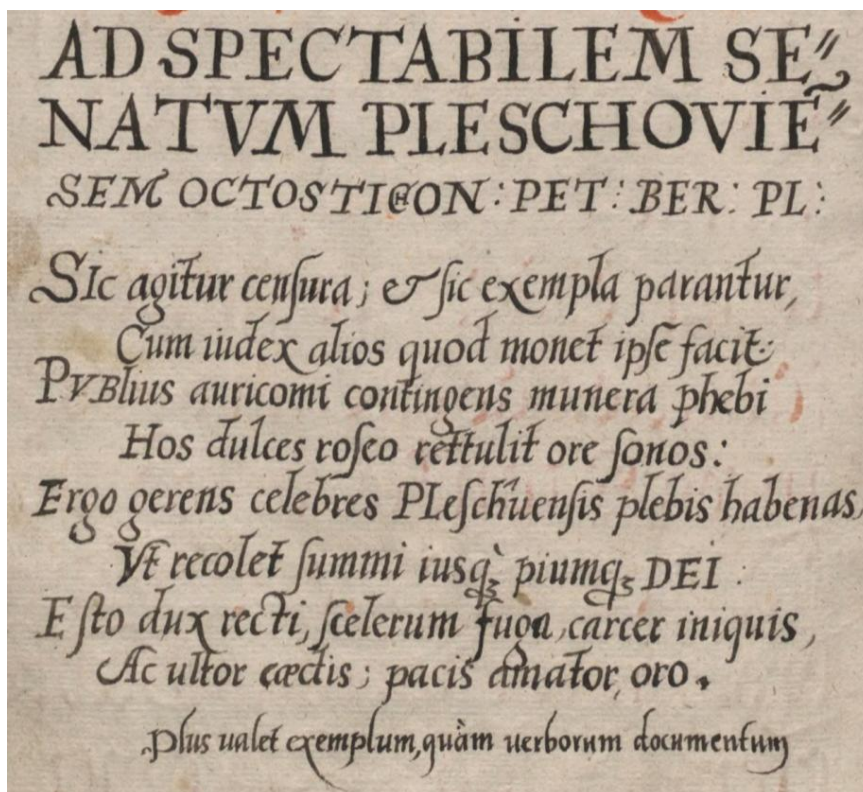 AD SPECTABILEM SE⸗
NATVM PLESCHOVIẼ⸗
SEM OCTOSTICHON: PET: BER: PL:
SIc agitur censura; & sic exempla parantur,
Cum iudex alios quod monet ipse facit:
PVBlius auricomi contingens munera phebi
Hos dulces roseo rettulit ore sonos:
Ergo gerens celebres Pleschuensis plebis habenas,
Vt recolet summi iusq; piumq; DEI :
Esto dux recti, scelerum fuga, carcer iniquis,
Ac ultor cæctis; pacis amator, oro.
Plus ualet exemplum, quàm uerborum documentum